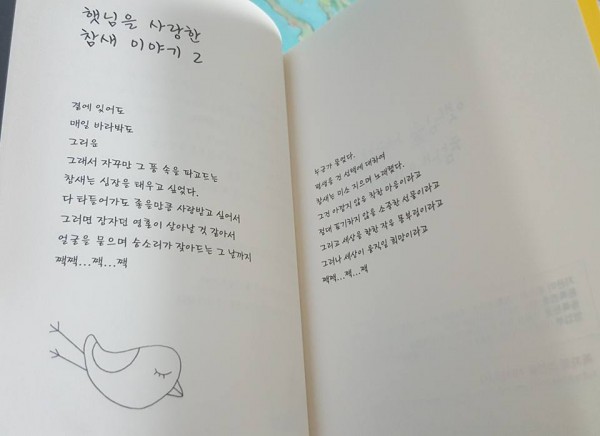 햇님을 사랑한
참새 이야기 2
곁에 있어도
매일 바라봐도
그리움
그래서 자꾸만 그 품 속을 파고드는
참새는 심장을 태우고 싶었다.
다 타들어가도 좋을만큼 사랑받고 싶어서
그러면 잠자던 영혼이 살아날 것 같아서
얼굴을 묻으며 숨소리가 잦아드는 그 날까지
짹짹...짹...짹
누군가 물었다.
평생을 건 선택에 대하여
참새는 미소 지으며 노래했다.
그건 아깝지 않을 착한 마음이라고
절대 포기하지 않을 소중한 선물이라고
그리고 세상을 향한 작은 몸부림이라고
그러나 세상이 움직일 희망이라고
짹짹...짹...짹